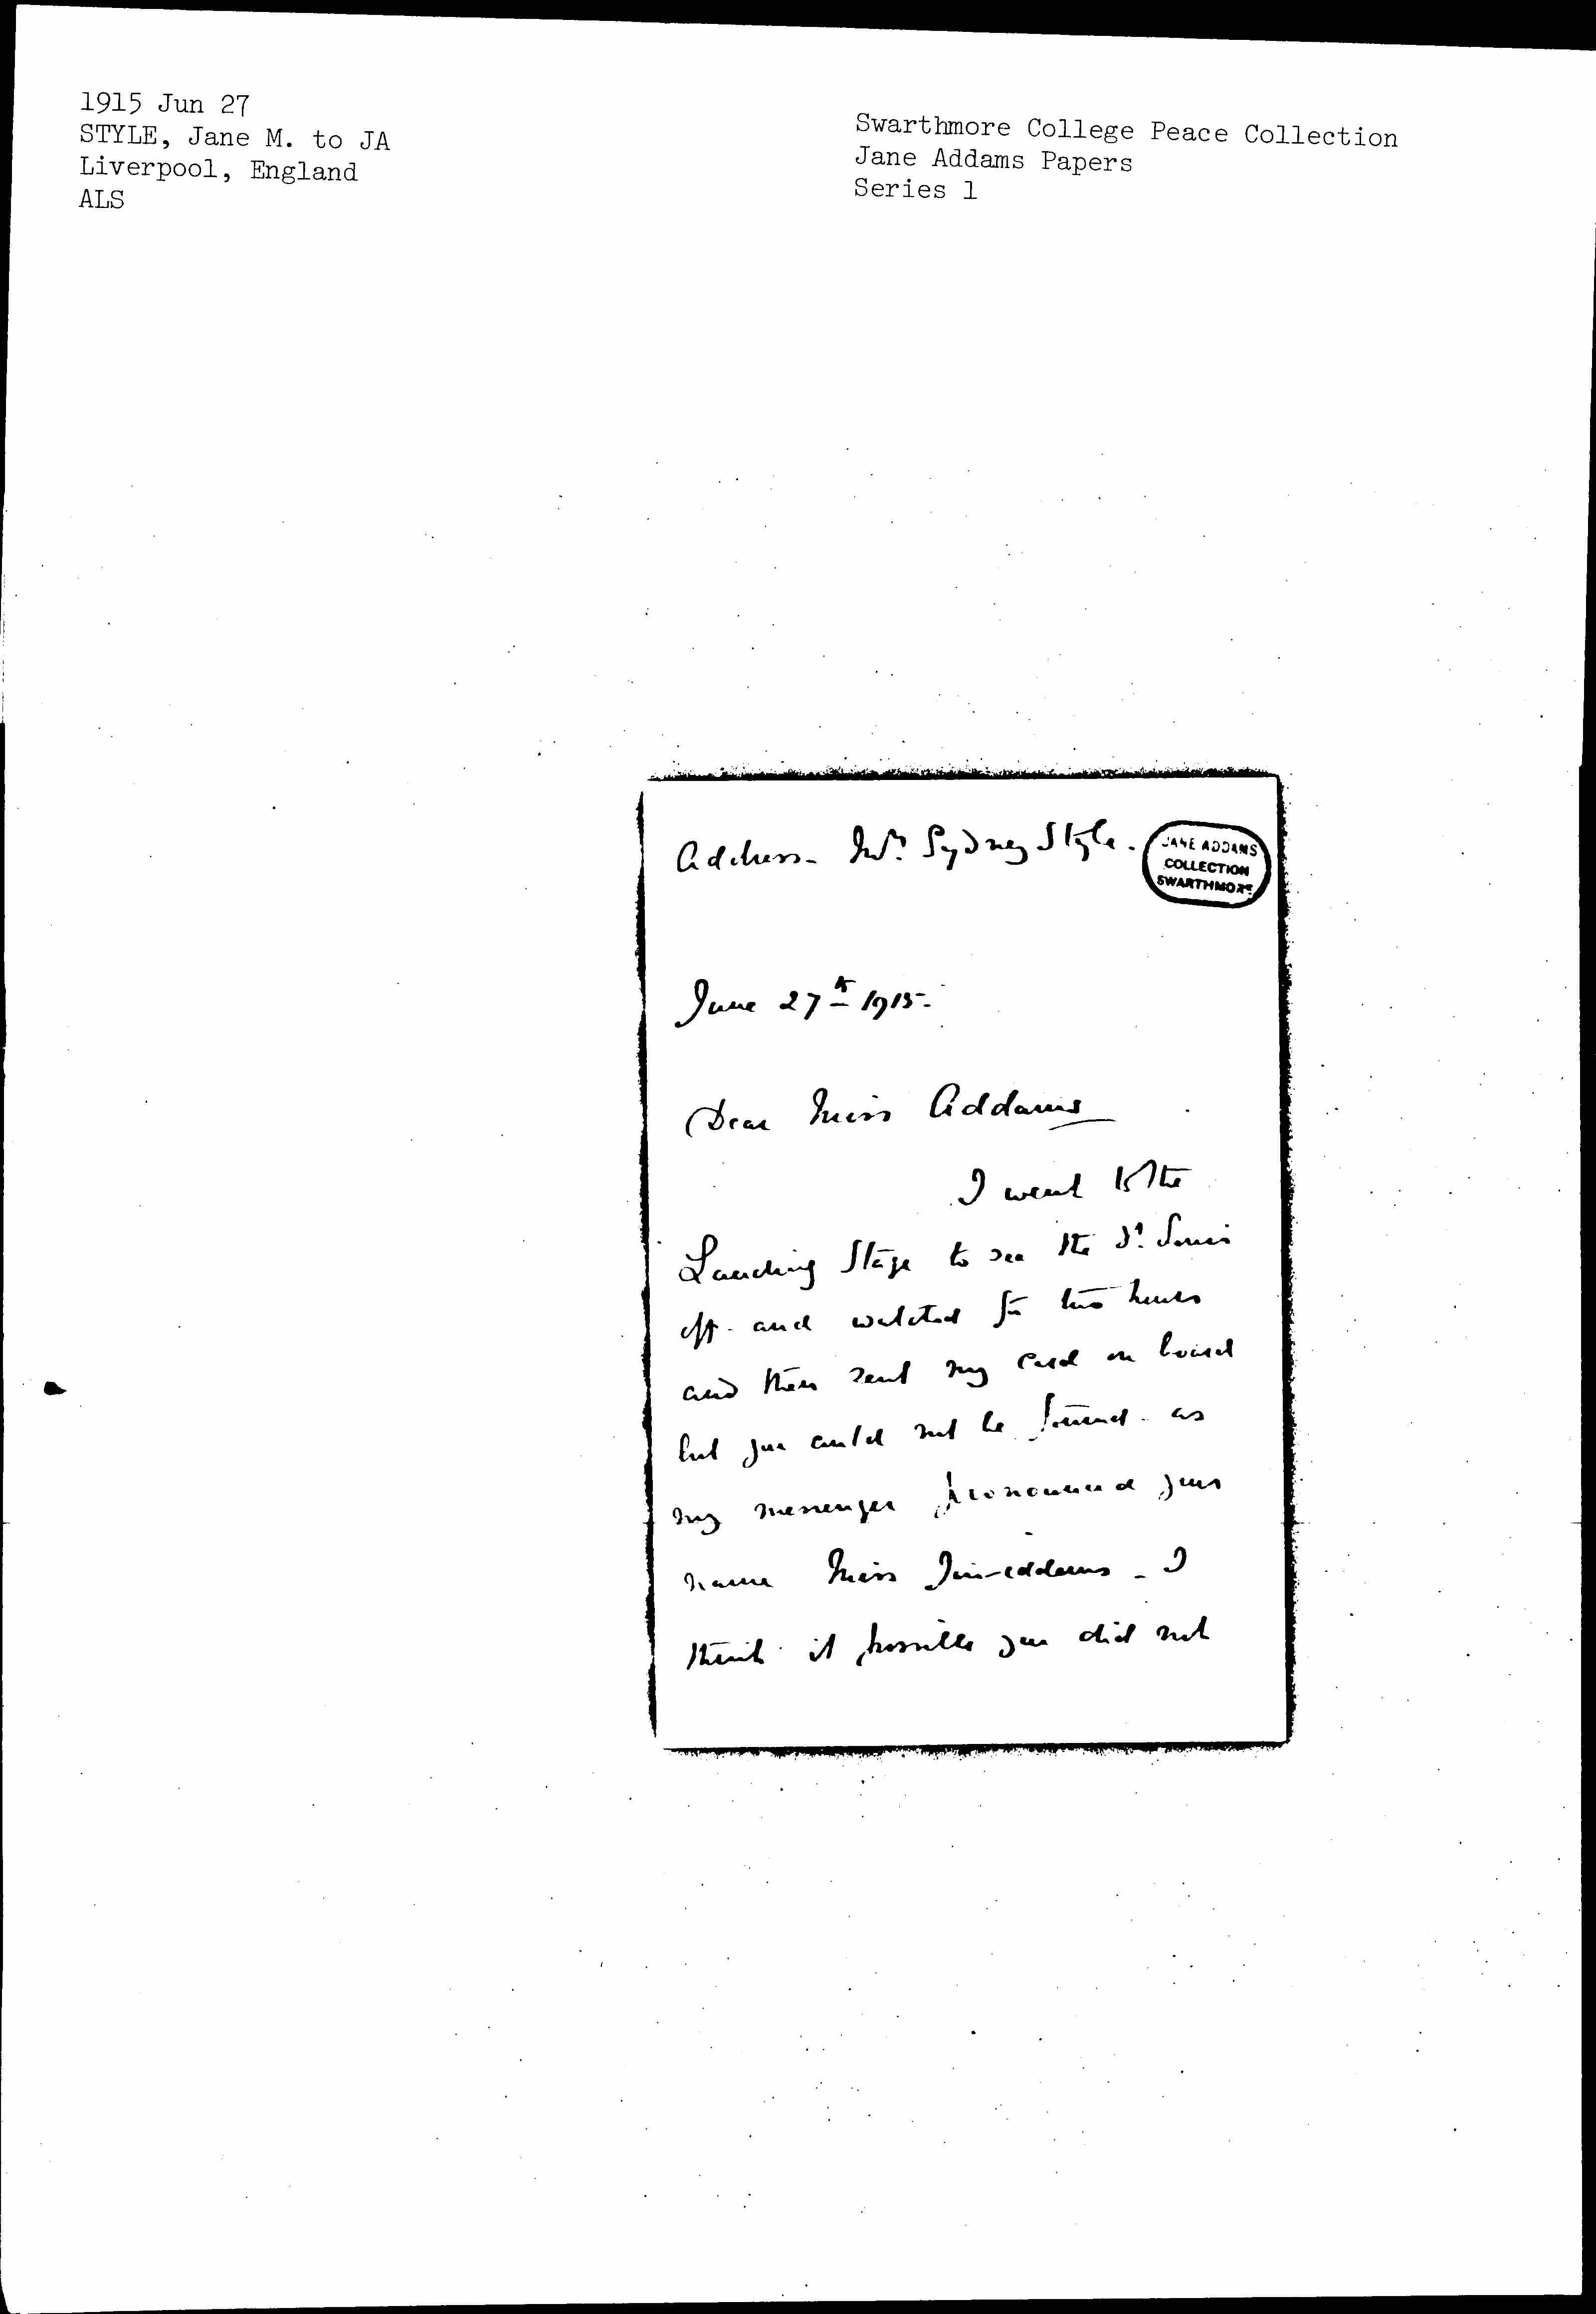 1915 Jun 27
STYLE, Jane M. to JA
Liverpool, England
ALS
Swarthmore College Peace Collection
Jane Addams Papers
Series 1
Address - Mrs. Sydney Style.
JANE ADDAMS
COLLECTION
SWARTHMORE
June 27th 1915.
Dear Miss Addams
I went to the
Landing Stage to see the St. Louis
off - and watched for two hours
and then sent my card on board
but you could not be found - as
my messenger pronounced your
name Miss - I
think it possible you did not